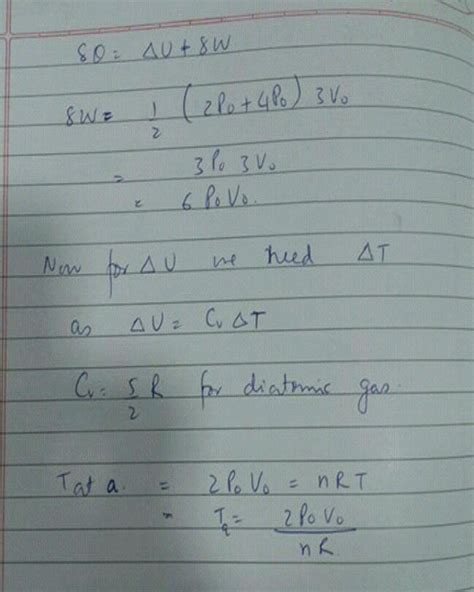 δQ = ΔU + δW
δW = 1/2 (2P₀ + 4P₀) 3V₀
= 3P₀ 3V₀
= 6 P₀V₀.
Now for ΔU we need ΔT
as ΔU = Cᵥ ΔT
Cᵥ = 5/2 R for diatomic gas.
T at a. = 2P₀V₀ = nRT
= Tₐ = 2P₀V₀/nR.